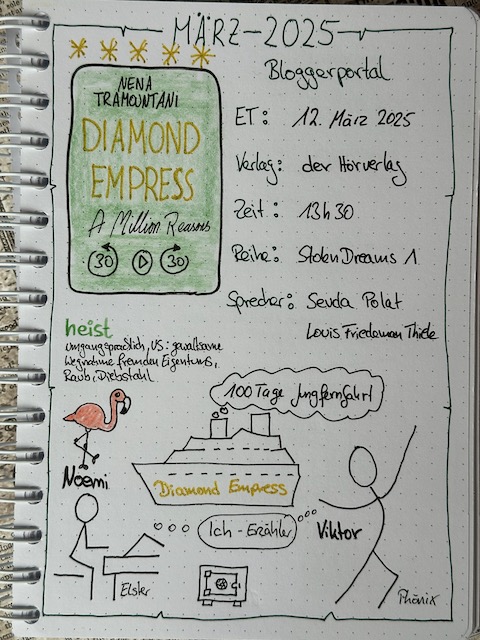 MÄRZ-2025
NENA
TRAMOUNTANI
DIAMOND
EMPRESS
A Million Reasons
30 30
Bloggerportal
ET: 12. März 2025
Verlag: der Hörverlag
Zeit: 13h30
Reihe: Stolen Dreams 1
Sprecher: Sevda Polat
Louis Friedemann Thiele
heist
umgangsprachlich, US: gewaltsame
Wegnahme fremden Eigentums,
Raub, Diebstahl
100 Tage Jungfernfahrt
Noemi
Diamond Empress
Ich-Erzähler
Viktor
Elster
Phönix